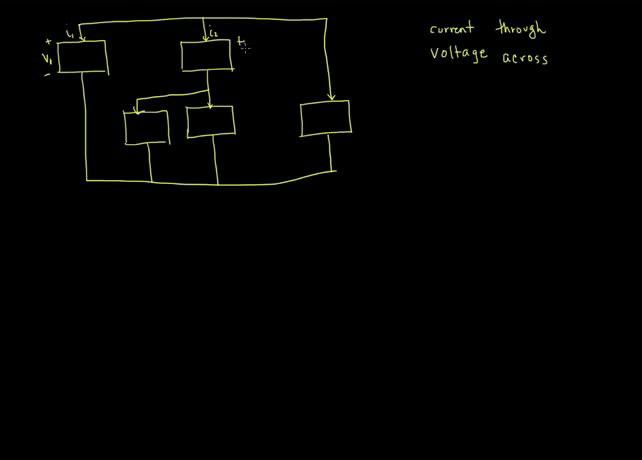 i₁
i₂
+
V₁
−
+
current through
Voltage across